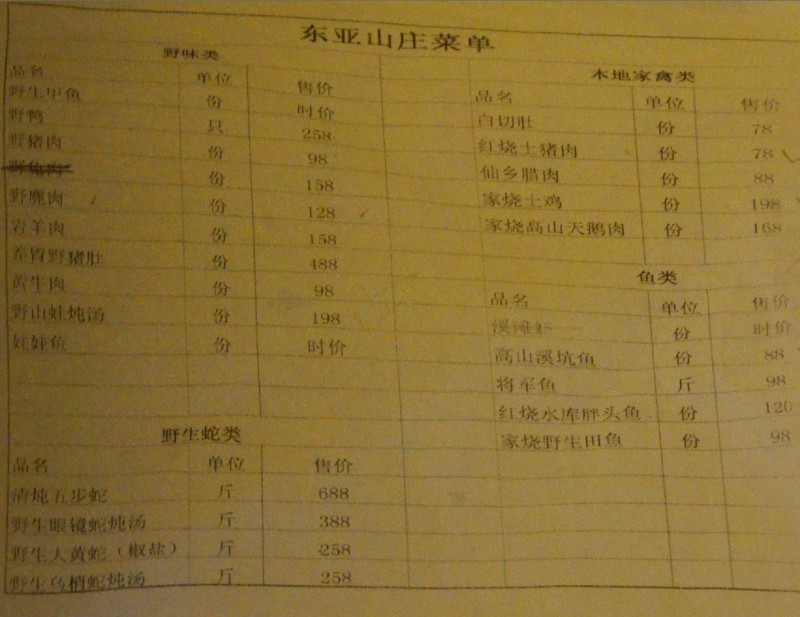 东亚山庄菜单
野味类
品名 单位 售价
野生甲鱼 份 时价
野鸭 只 258
野猪肉 份 98
野兔肉 份 158
野鹿肉 份 128
岩羊肉 份 158
养胃野猪肚 份 488
黄牛肉 份 98
野山蛙炖汤 份 198
娃娃鱼 份 时价
野生蛇类
品名 单位 售价
清炖五步蛇 斤 688
野生眼镜蛇炖汤 斤 388
野生大黄蛇（椒盐） 斤 258
野生乌梢蛇炖汤 斤 258
本地家禽类
品名 单位 售价
白切肚 份 78
红烧土猪肉 份 78
仙乡腊肉 份 88
家烧土鸡 份 198
家烧高山天鹅肉 份 168
鱼类
品名 单位 售价
溪滩虾 份 时价
高山溪坑鱼 份 88
将军鱼 斤 98
红烧水库胖头鱼 份 120
家烧野生田鱼 份 98